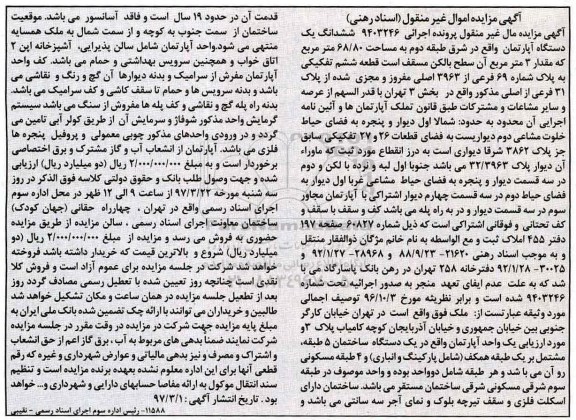 آگهی مزایده اموال غیر منقول (اسناد رهنی)
آگهی مزایده مال غیر منقول پرونده اجرائی ۹۴۰۳۲۴۶ ششدانگ یک
دستگاه آپارتمان واقع در شرق طبقه دوم به مساحت ۶۸/۸۰ متر مربع
که مقدار ۳ متر مربع آن سطح بالکن مسقف است قطعه ششم تفکیکی
به پلاک شماره ۶۹ فرعی از ۳۹۶۳ اصلی مفروز و مجزی شده از پلاک
۳۱ فرعی از اصلی مذکور واقع در بخش ۳ تهران با قدر السهم از عرصه
و سایر مشاعات و مشترکات طبق قانون تملک آپارتمان ها و آئین نامه
اجرایی آن محدود به حدود: شمالا اول دیوار و پنجره به فضای
خلوت مشاعی دوم دیواریست به فضای قطعات ۲۶ و ۲۷ تفکیکی سابق
جز پلاک ۳۸۶۲ شرقا دیواری است به درز انقطاع مورد ثبت که ماوراء
آن دیوار پلاک ۳۲/۳۹۶۳ می باشد جنوبا اول لبه و نرده با لکن و دوم
در سه قسمت دیوار و پنجره به فضای حیاط مشاعی غربا اول دیوار به
فضای حیاط دوم در سه قسمت چهارم دیوار اشتراکی با آپارتمان مجاور
سوم در سه قسمت دیوار و در به راه پله می باشد کف و سقف با سقف و
کف تحتانی و فوقانی اشتراکی است که ذیل شماره ۶۰۸۲۷ صفحه ۱۹۷
دفتر ۴۵۵ املاک ثبت و مع الواسطه به نام خانم مژگان ذوالفقار منتقل
و به موجب اسناد رهنی ۲۱۶۲۰- ۸۸/۹/۲۳ و ۲۸۹۶۸- ۹۲/۱/۲۷ و
۳۰۰۲۵- ۹۲/۱/۲۸ دفترخانه ۲۵۸ تهران در رهن بانک پاسارگاد می با
شد که به علت عدم ایفای تعهد منجر به صدور اجرائیه تحت شماره
۹۴۰۳۲۴۶ شده است و برابر نظریه مورخ ۹۶/۱۰/۳ توصیف اجمالی
مورد وثیقه عبارتست از: ملک فوق واقع است در تهران خیابان کارگر
جنوبی بین خیابان جمهوری و خیابان آذربایجان کوچه کامیاب پلاک ۳و
مورد ارزیابی یک واحد آپارتمان واقع در یک دستگاه ساختمان ۵ طبقه،
مشتمل بر یک طبقه همکف (شامل پارکینگ و انباری) و ۴ طبقه مسکونی
رو آن می با شد و هر طبقه شامل دوواحد بوده و واحد موصوف در طبقه
سوم شرقی مسکونی شرقی ساختمان مستقر می باشد. ساختمان دارای
اسکلت فلزی و سقف تیرچه بلوک و نمای آجر سه سانتی می باشد و
قدمت آن در حدود ۱۹ سال است و فاقد آسانسور می باشد. موقعیت
ساختمان از سمت جنوب به کوچه و از سمت شمال به ملک همسایه
منتهی می شود.واحد آپارتمان شامل سالن پذیرایی، آشپزخانه اپن ۲
اتاق خواب و همچنین سرویس بهداشتی و حمام می باشد. کف واحد
آپارتمان مفرش از سرامیک و بدنه دیوارها آن گچ و رنگ و نقاشی می
باشد و بدنه سرویس ها و حمام تا سقف کاشی و کف سرامیک می باشد.
بدنه راه پله گچ و نقاشی و کف پله ها مفروش از سنگ می باشد سیستم
گرمایش واحد مذکور شوفاژ و سرمایش آن از طریق کولر آبی تامین می
گردد و در ورودی واحدهای مذکور چوبی معمولی و پروفیل پنجره ها
فلزی می باشد. آپارتمان از انشعاب آب و گاز مشترک و برق اختصاصی
برخوردار است و به مبلغ ۲/۰۰۰/۰۰۰/۰۰۰ ریال (دو میلیارد ریال) ارزیابی
شده و جهت وصول طلب بانک و حقوق دولتی کلاسه فوق الذکر در روز
سه شنبه مورخه ۹۷/۳/۲۲ از ساعت ۹ الی ۱۲ ظهر در محل اداره سوم
اجرای اسناد رسمی واقع در تهران ، چهارراه حقانی (جهان کودک)
ساختمان معاونت اجرای اسناد رسمی ، سالن مزایده از طریق مزایده
حضوری به فروش می رسد و مزایده از مبلغ ۲/۰۰۰/۰۰۰/۰۰۰ ریال (دو
میلیارد ریال) شروع و بالاترین قیمت که خریدار داشته باشد فروخته
خواهد شد شرکت در جلسه مزایده برای عموم آزاد است و فروش کلا
نقدی است چنانچه روز تعیین شده با تعطیل رسمی مصادف گردد روز
بعد از تعطیل جلسه مزایده در همان ساعت و مکان تشکیل خواهد شد
طالبین و خریداران می توانند با ارائه چک تضمین شده بانک ملی ایران به
مبلغ پایه مزایده جهت شرکت در مزایده در وقت مقرر در جلسه مزایده
شرکت نمایند ضمنا بدهی های مربوط به آب، برق گاز اعم از حق انشعاب
و اشتراک و مصرف و نیز بدهی مالیاتی و عوارض شهرداری و غیره که رقم
قطعی آنها برای این اداره معلوم نشده بعهده برنده مزایده است و تنظیم
سند انتقال موکول به ارائه مفاصا حسابهای دارایی و شهرداری و... خواهد
بود . تاریخ انتشار آگهی: ۹۷/۳/۱
۱۱۵۸۸- رئیس اداره سوم اجرای اسناد رسمی - نقیبی